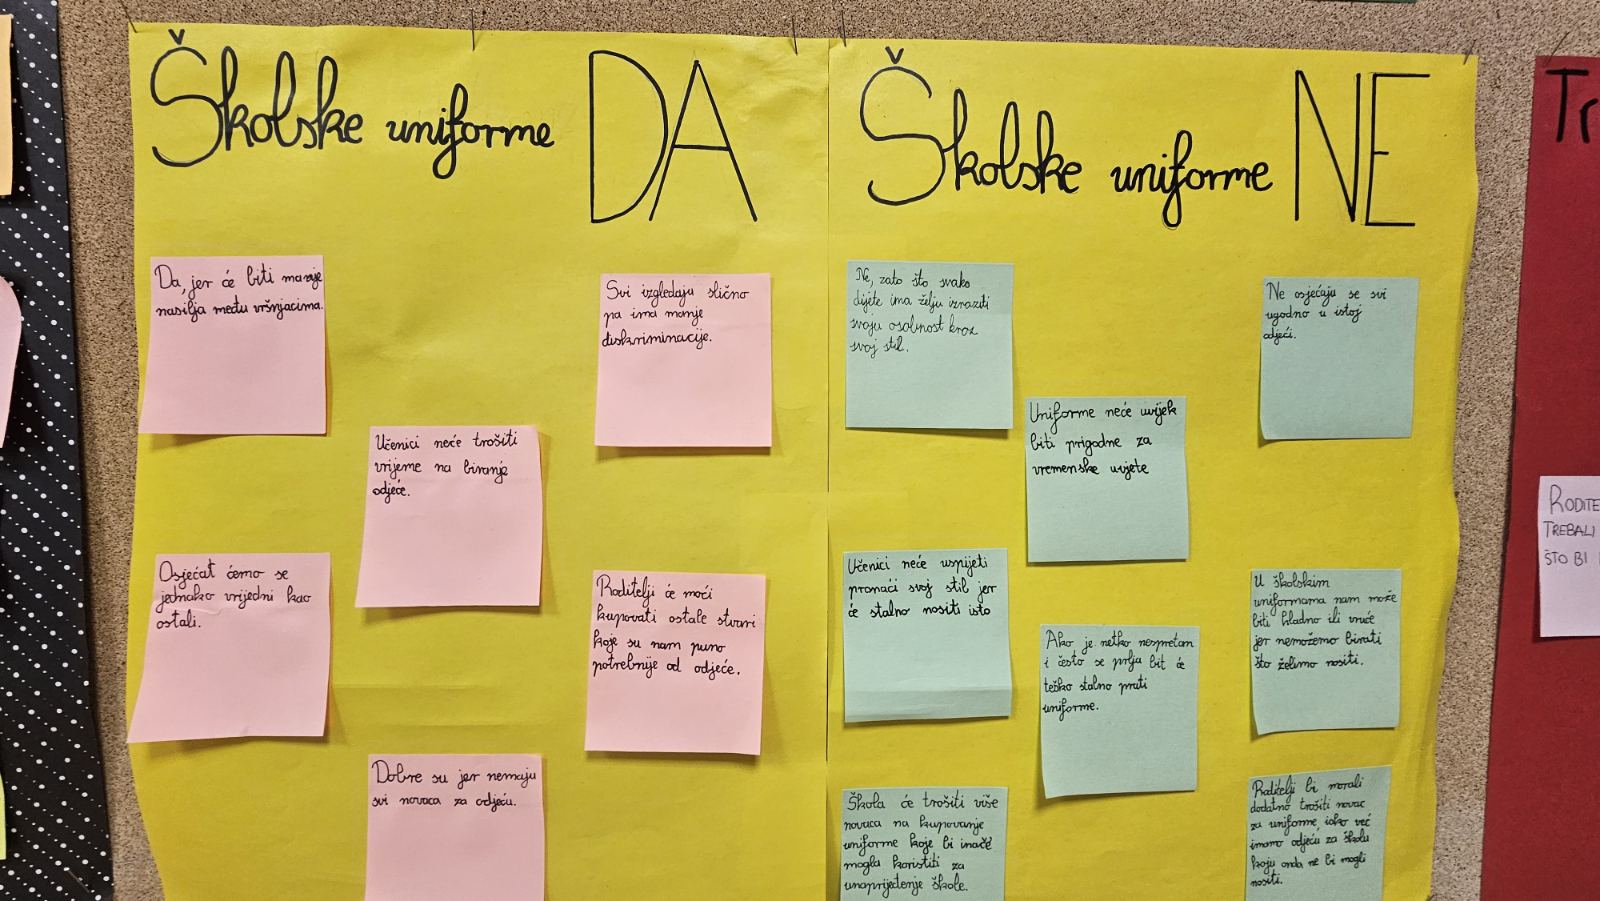 Školske uniforme DA
Da, jer će biti manje
nasilja među vršnjacima.
Svi izgledaju slično
pa ima manje
diskriminacije.
Učenici neće trošiti
vrijeme na biranje
odjeće.
Osjećat ćemo se
jednako vrijedni kao
ostali.
Roditelji će moći
kupovati ostale stvari
koje su nam puno
potrebnije od odjeće.
Dobre su jer nemaju
svi novaca za odjeću.
Školske uniforme NE
Ne, zato što svako
dijete ima želju izraziti
svoju osobnost kroz
svoj stil.
Ne osjećaju se svi
ugodno u istoj
odjeći.
Uniforme neće uvijek
biti prigodne za
vremenske uvjete
Učenici neće uspijeti
pronaći svoj stil jer
će stalno nositi isto
U školskim
uniformama nam može
biti hladno ili vruće
jer nemožemo birati
što želimo nositi.
Ako je netko nespretan
i često se prlja bit će
teško stalno prati
uniforme.
Škola će trošiti više
novaca na kupovanje
uniforme koje bi inače
mogla koristiti za
unaprijeđenje škole.
Roditelji bi morali
dodatno trošiti novac
za uniforme, iako već
imamo odjeću za školu
koju onda ne bi mogli
nositi.
Tr
RODITE
TREBALI
ŠTO BI